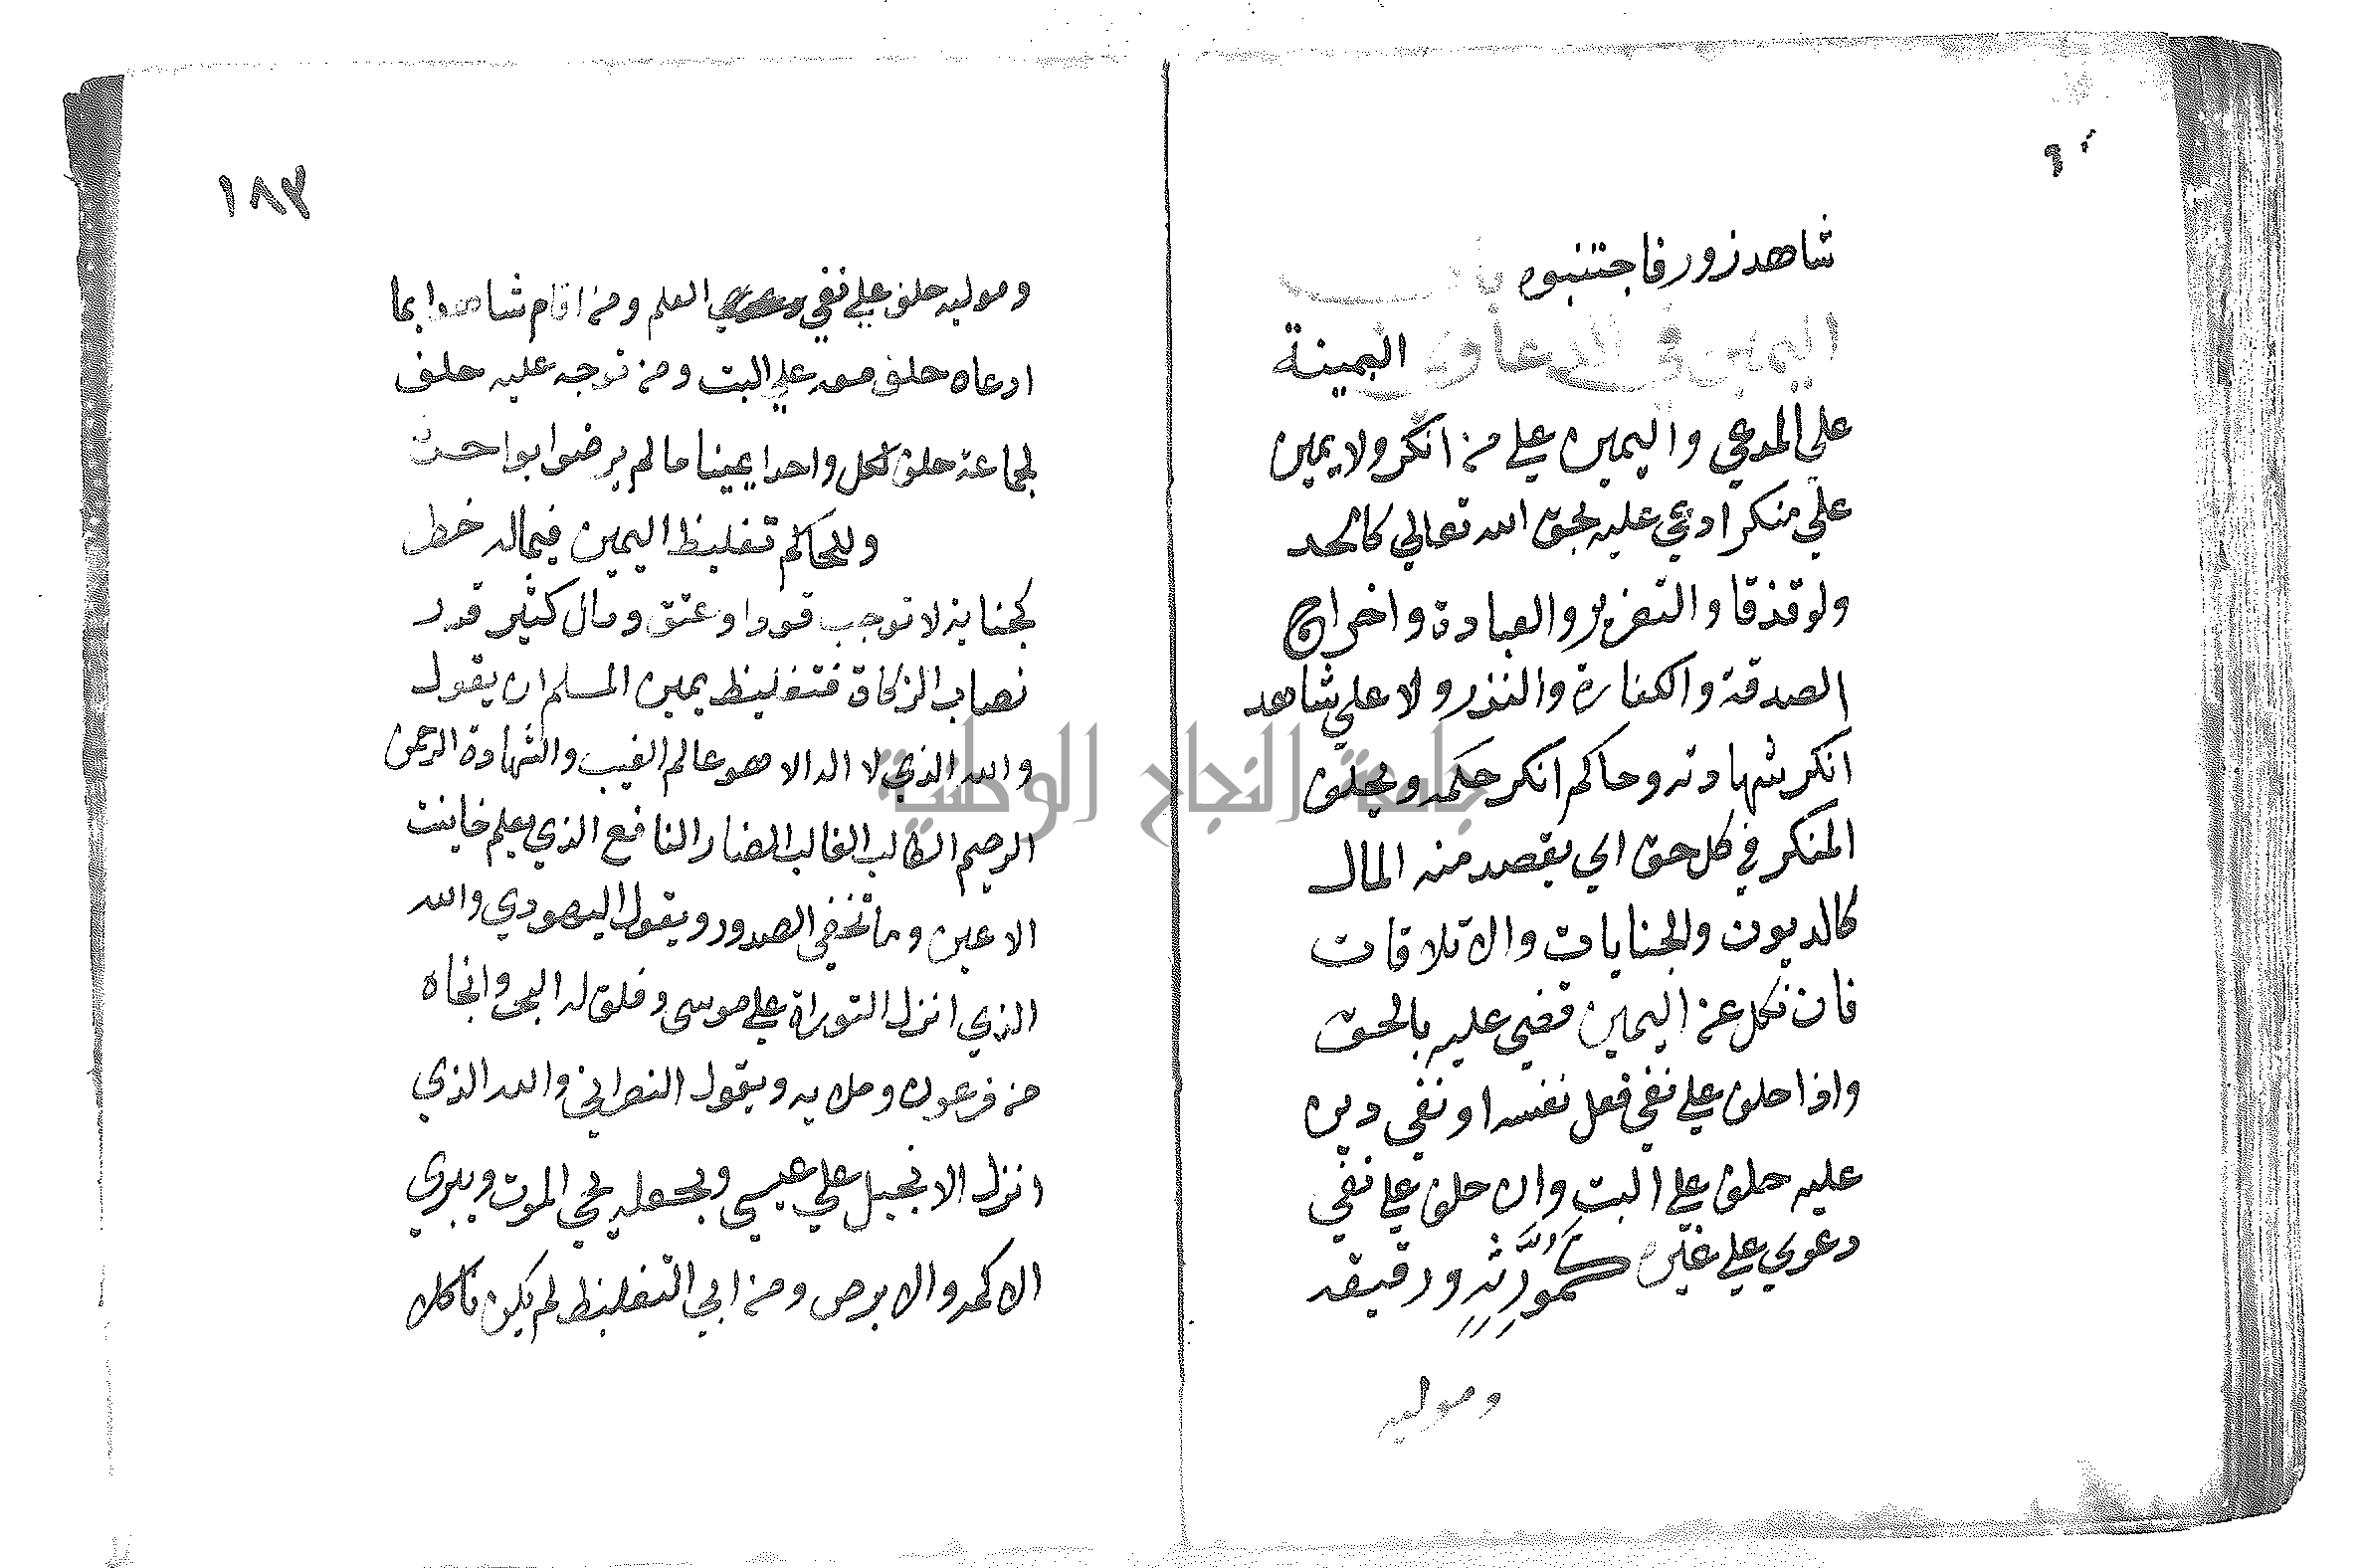 شاهد زور فاجتنبوه باب
اليمين في الدعاوي البينة
علي المدعي واليمين علي من انكر ولا يمين
علي منكر ادعي عليه بحق الله تعالي كالحد
ولو قذفا والتعزير والعبادة واخراج
الصدقة والكفارة والنذر ولا علي شاهد
انكر شهادته وحاكم انكر حكمه ويحلف
المنكر في كل حق ادمي يقصد منه المال
كالديون والجنايات والاتلافات
فان نكل عن اليمين قضي عليه بالحق
واذا حلف علي نفي فعل نفسه او نفي دين
عليه حلف علي البت وان حلف علي نفي
دعوي علي غيره كمورثه ورقيقه
وموليه
١٨٣
وموليه حلف علي نفي العلم ومن اقام شاهدا بما
ادعاه حلف معه علي البت ومن توجه عليه حلف
لجماعة حلف لكل واحد يمينا ما لم يرضوا بواحدة
وللحاكم تغليظ اليمين فيما له خطر
كجناية لا توجب قودا وعتق ومال كثير قدر
نصاب الزكاة فتغليظ يمين المسلم ان يقول
والله الذي لا اله الا هو عالم الغيب والشهادة الرحمن
الرحيم الطالب الغالب الضار النافع الذي يعلم خاينت
الاعين وما تخفي الصدور ويقول اليهودي والله
الذي انزل التوراة علي موسي وفلق له البحر وانجاه
من فرعون وملايه ويقول النصراني والله الذي
انزل الانجيل علي عيسي وجعله يحي الموت ويبري
الاكمه والابرص ومن ابي التغليظ لم يكن ناكلا
جامعة النجاح الوطنية